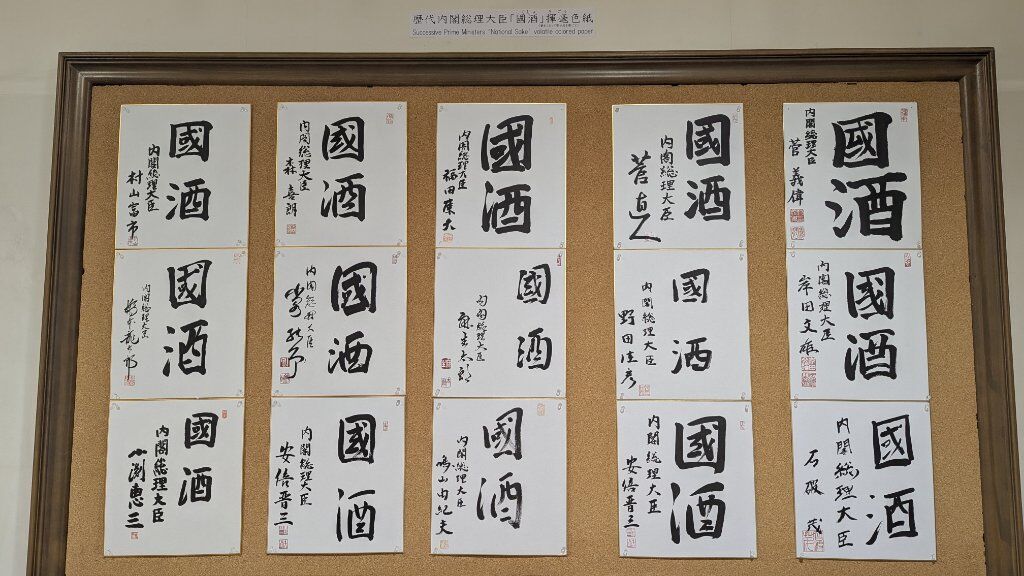 歴代内閣総理大臣「國酒」揮毫色紙
Successive Prime Ministers "National Sake" volatile colored paper
國酒
内閣総理大臣
村山富市
國酒
内閣総理大臣
森喜朗
國酒
内閣総理大臣
福田康夫
國酒
内閣総理大臣
菅直人
國酒
内閣総理大臣
菅義偉
國酒
内閣総理大臣
橋本龍太郎
國酒
内閣総理大臣
國酒
内閣総理大臣
麻生太郎
國酒
内閣総理大臣
野田佳彦
國酒
内閣総理大臣
岸田文雄
國酒
内閣総理大臣
小渕恵三
國酒
内閣総理大臣
安倍晋三
國酒
内閣総理大臣
鳩山由紀夫
國酒
内閣総理大臣
安倍晋三
國酒
内閣総理大臣
石破茂